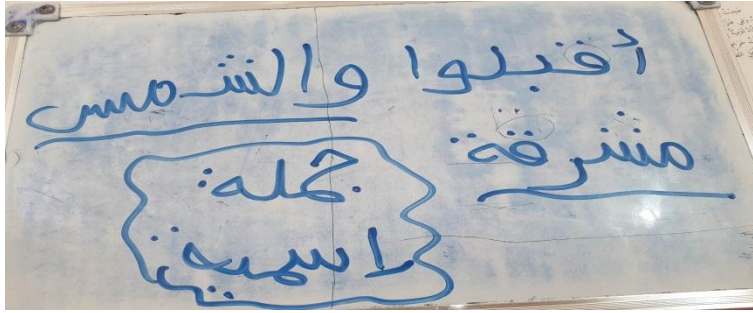 أقبلوا والشمس
مشرقة
جملة
اسمية